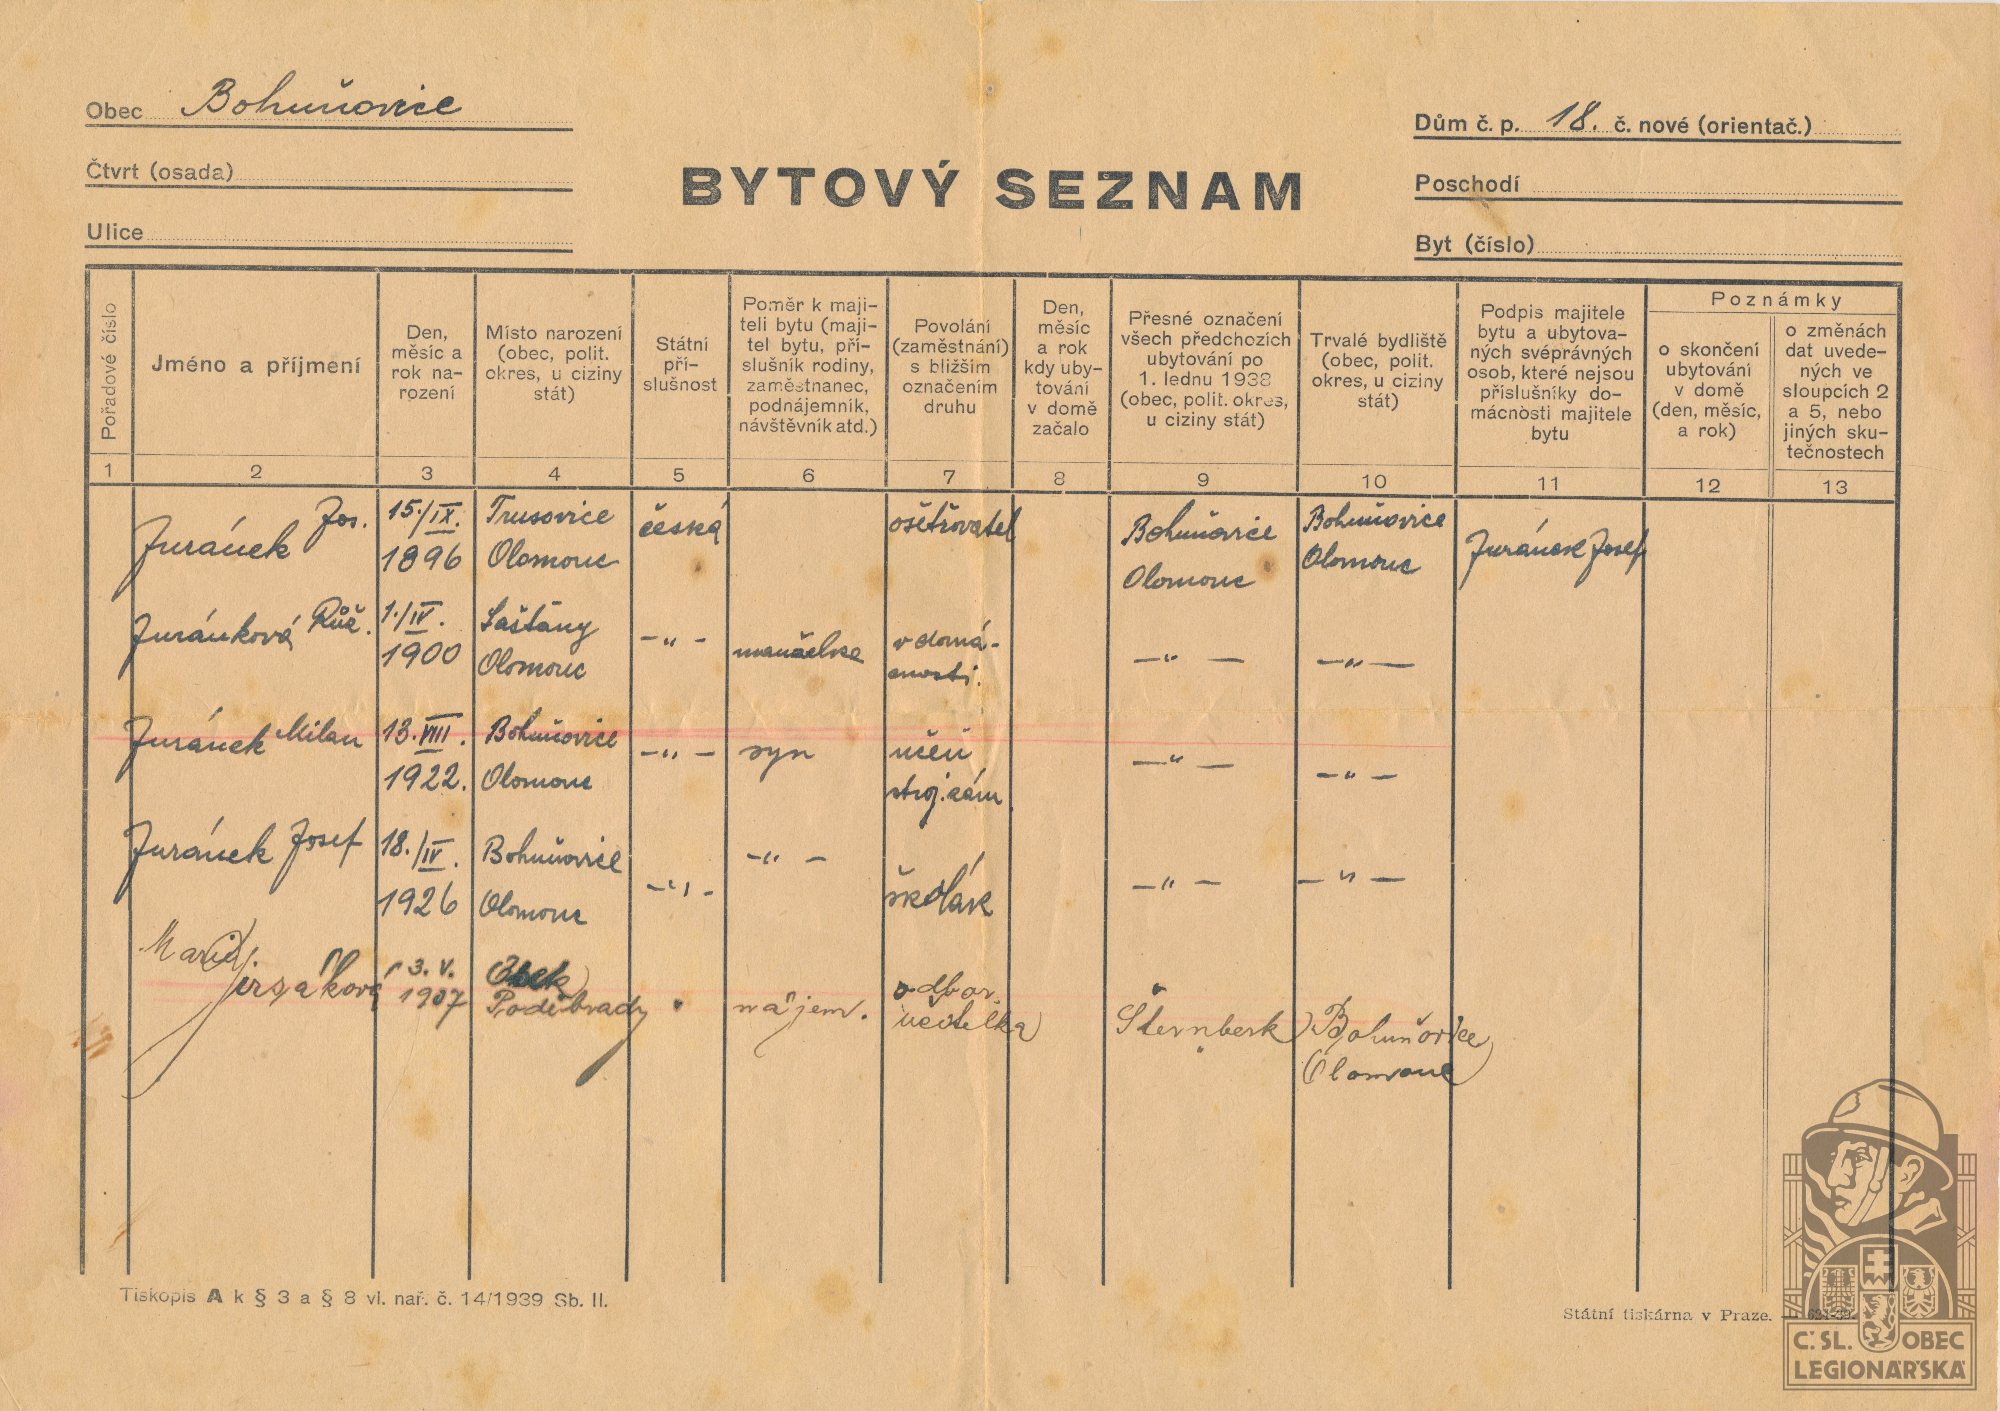 Obec Bohuňovice
Čtvrt (osada)
Ulice
BYTOVÝ SEZNAM
Dům č. p. 18. č. nové (orientač.)
Poschodí
Byt (číslo)
Pořadové číslo
Jméno a příjmení
Den,
měsíc a
rok na-
rození
Místo narození
(obec, polit.
okres, u ciziny
stát)
Státní
pří-
slušnost
Poměr k maji-
teli bytu (maji-
tel bytu, pří-
slušník rodiny,
zaměstnanec,
podnájemník,
návštěvník atd.)
Povolání
(zaměstnání)
s bližším
označením
druhu
Den,
měsíc
a rok
kdy uby-
tování
v domě
začalo
Přesné označení
všech předchozích
ubytování po
1. lednu 1938
(obec, polit. okres,
u ciziny stát)
Trvalé bydliště
(obec, polit.
okres, u ciziny
stát)
Podpis majitele
bytu a ubytova-
ných svéprávných
osob, které nejsou
příslušníky do-
mácnosti majitele
bytu
Poznámky
o skončení
ubytování
v domě
(den, měsíc,
a rok)
o změnách
dat uvede-
ných ve
sloupcích 2
a 5, nebo
jiných sku-
tečnostech
1 2 3 4 5 6 7 8 9 10 11 12 13
Juránek Jos. 15./IX. Trusovice česká ošetřovatel Bohuňovice Bohuňovice Juránek Josef
1896 Olomouc Olomouc Olomouc
Juránková Růž. 1./IV. Laštány -„- manželka v domá-
1900 Olomouc cnosti. -„- -„-
Juránek Milan 13.VIII. Bohuňovice -„- syn učeň -„- -„-
1922. Olomouc stroj. zám
Juránek Josef 18./IV. Bohuňovice -„- -„- školák -„- -„-
1926 Olomouc
Marie 3. V. odbor.
Jirsáková 1907 Poděbrady " nájem. učitelka Šternberk Bohuňovice
Olomouc
Tiskopis A k § 3 a § 8 vl. nař. č. 14/1939 Sb. II.
Státní tiskárna v Praze. —
Č. SL. OBEC
LEGIONÁŘSKÁ